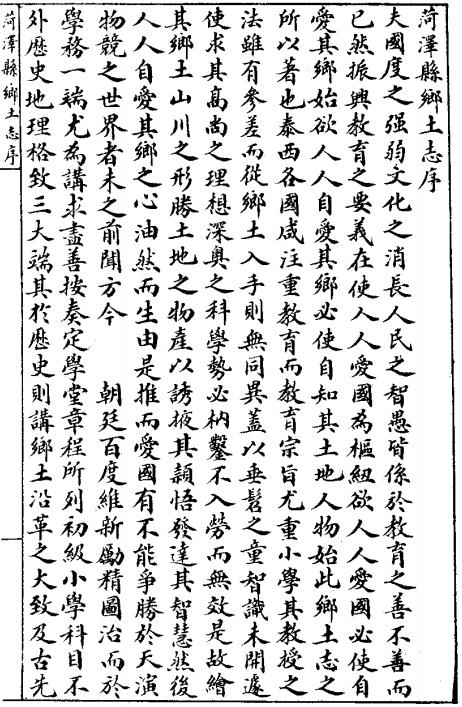 菏澤縣鄉土志序
夫國度之强弱文化之消長人民之智愚皆係於教育之善不善而
已然振興教育之要義在使人人愛國為樞紐欲人人愛國必使自
愛其鄉始欲人人自愛其鄉必使自知其土地人物始此鄉土志之
所以著也泰西各國咸注重教育而教育宗旨尤重小學其教授之
法雖有參差而從鄉土入手則無同異蓋以垂髫之童智識未開遽
使求其高尚之理想深奥之科學勢必枘鑿不入勞而無效是故繪
其鄉土山川之形勝土地之物產以誘掖其穎悟發達其智慧然後
人人自愛其鄉之心油然而生由是推而愛國有不能爭勝於天演
物競之世界者未之前聞方今 朝廷百度維新勵精圖治而於
學務一端尤為講求盡善按奏定學堂章程所列初級小學科目不
外歷史地理格致三大端其於歷史則講鄉土沿革之大致及古先
菏澤縣鄉土志序